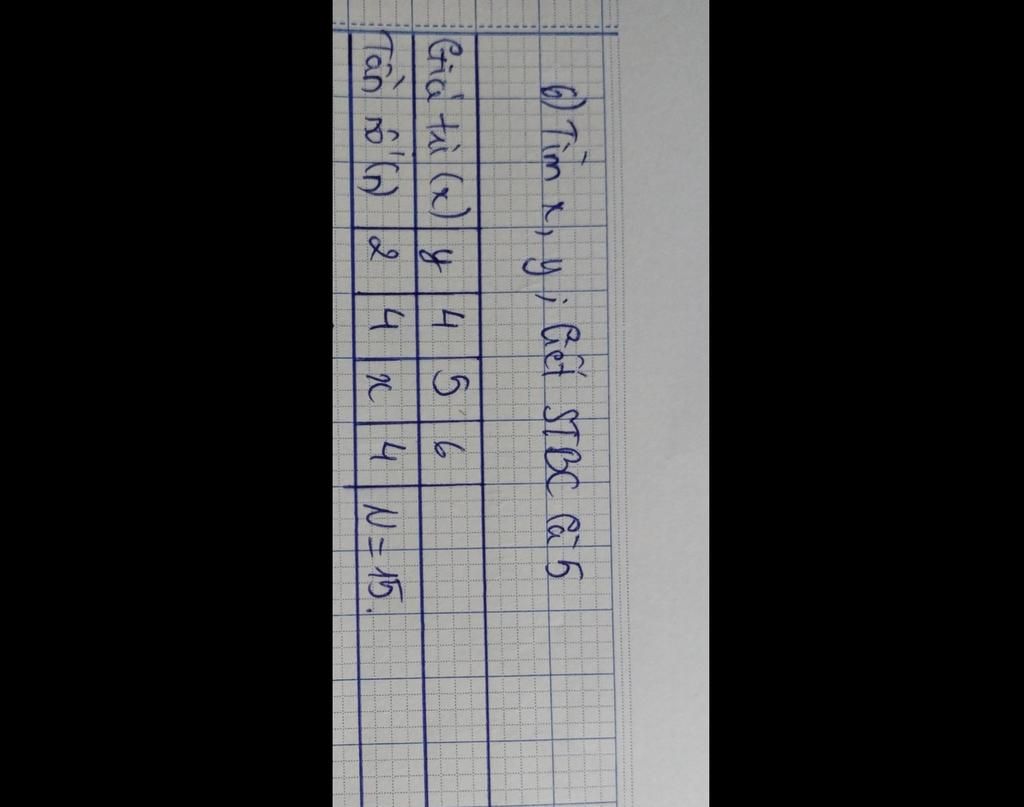 6) Tìm x, y, biết STBC là 5
Giá trị (x) y 4 5 6
Tần số (n) 2 4 x 4 N = 15.